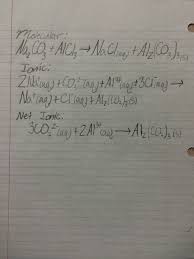 Molecular:
Na₂CO₃ + AlCl₃ → NaCl(aq) + Al₂(CO₃)₃(s)
Ionic:
2Na⁺(aq) + CO₃²⁻(aq) + Al³⁺(aq) + 3Cl⁻(aq) →
Na⁺(aq) + Cl⁻(aq) + Al₂(CO₃)₃(s)
Net Ionic:
3CO₃²⁻(aq) + 2Al³⁺(aq) → Al₂(CO₃)₃(s)